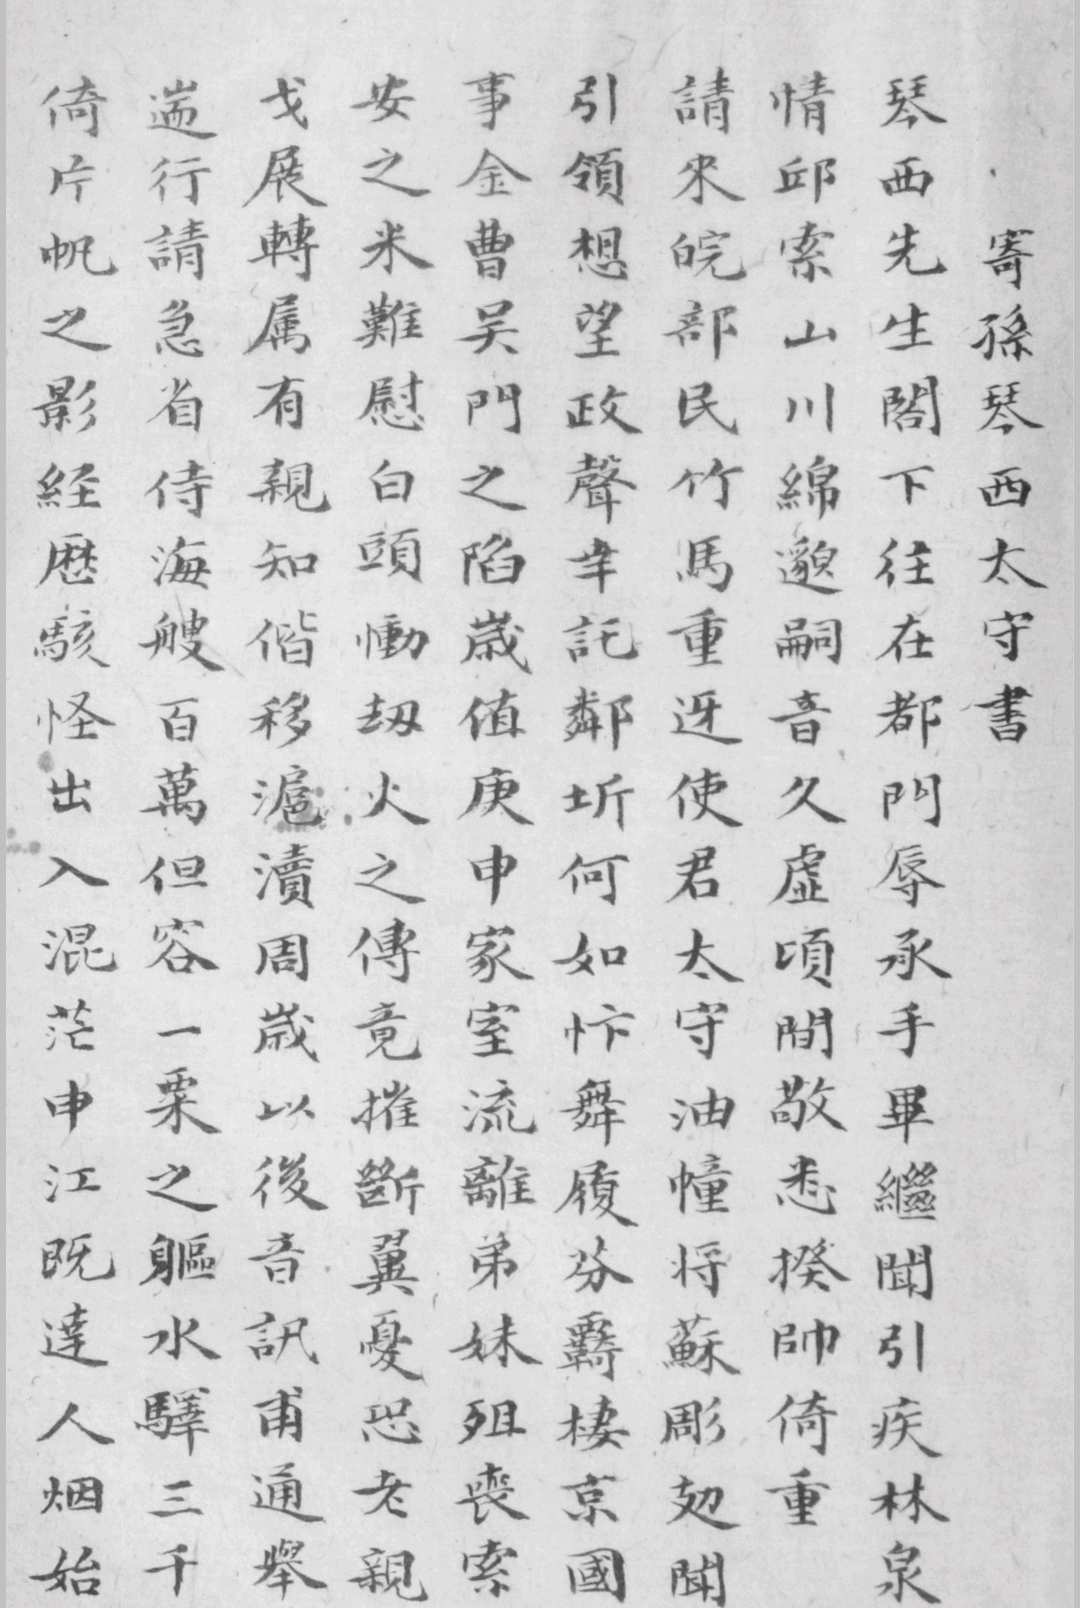 寄孫琴西太守書
琴西先生閣下往在都門辱承手畢繼聞引疾林泉
情邱索山川綿邈嗣音久虛頃間敬悉揆帥倚重
請來皖部民竹馬重迓使君太守油幢将蘇彫劾聞
引領想望政聲幸託鄰圻何如忭舞履芬羇棲京國
事金曹吴門之陷歳值庚申家室流離弟妹殂喪索
安之米難慰白頭慟劫火之傳竟摧斷翼憂恐老親
戈展轉属有親知偕移滬瀆周歳以後音訊甫通舉
遄行請急省侍海艘百萬但容一粟之軀水驛三千
倚片帆之影経歴駭怪出入混茫申江既達人烟始